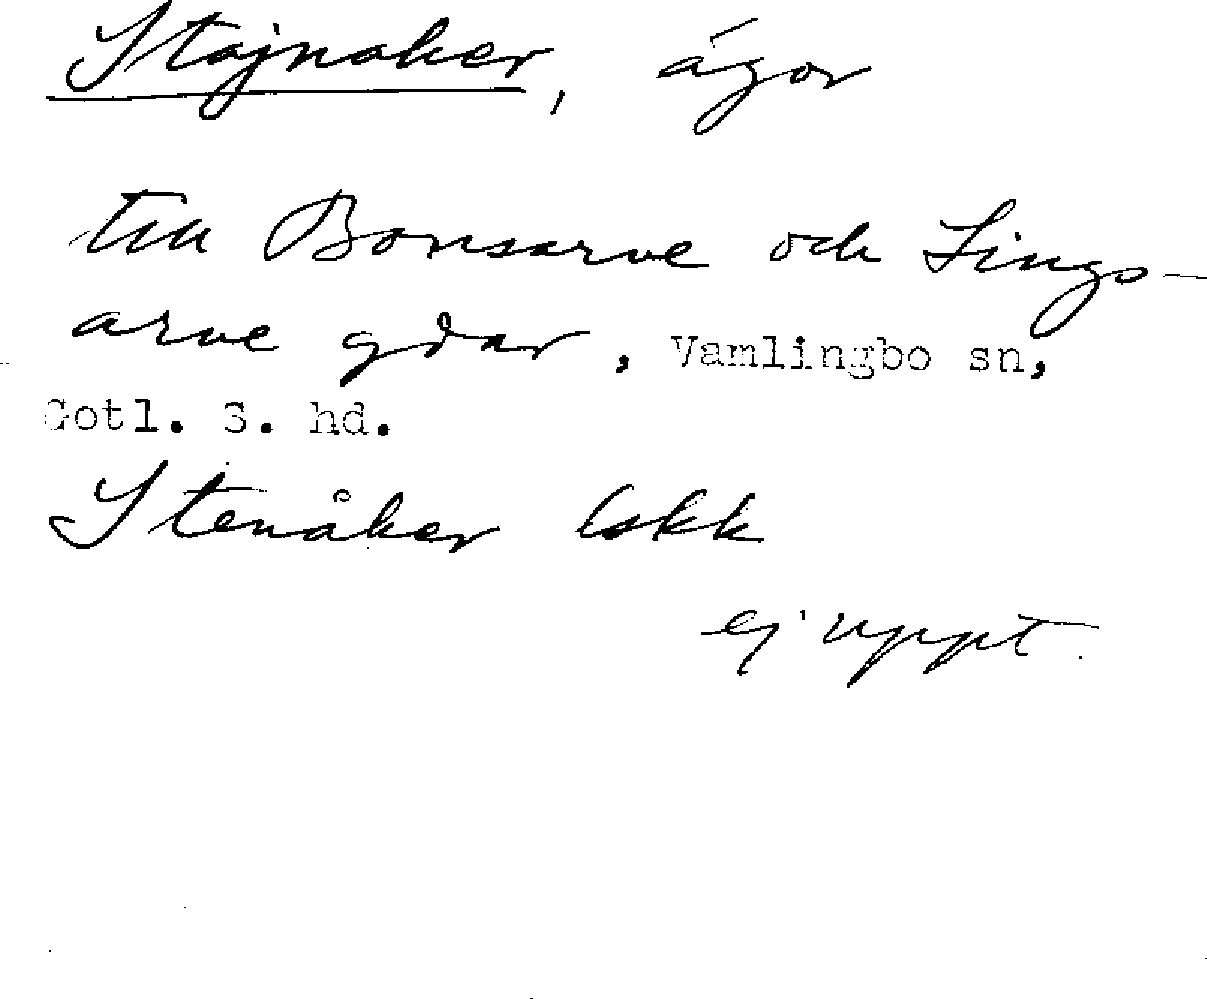 Stajnaker, ägor
till Bonsarve och Lings-
arve gdar, Vamlingbo sn,
Gotl. S. hd.
Stenåker Eskk
ej uppt.